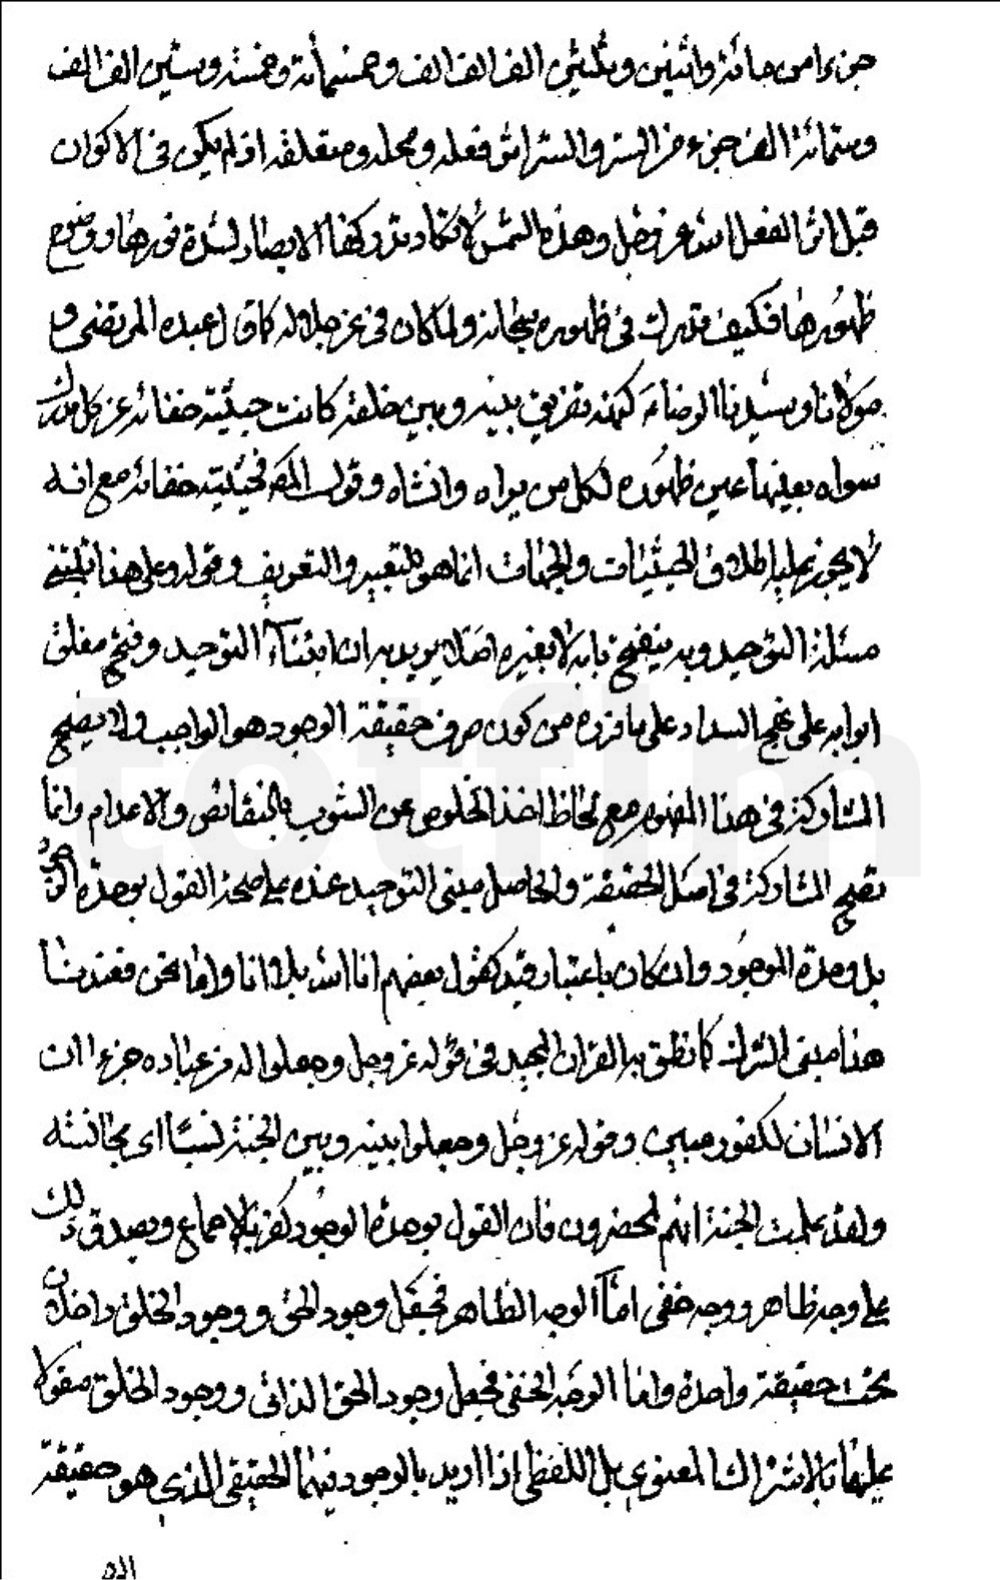 جزءا من مائة واثنين وثلثين الف الف الف وخمسمأئة وخمسة وستين الف الف
وستمائة الف جزء من الستر والستر اثر فعله ومحله ومتعلقه اذ لم يكن في الاكوان
قبل اثر الفعل الله عز وجل وهذه الشمس لا تكاد تدركها الابصار لشدة نورها ووضوح
ظهورها فكيف تدرك في ظهوره سبحانه ولما كان في عز جلاله كما قال عبده المرتضى و
مولانا وسيدنا الرضا ع كنهه تفريق بينه وبين خلقه كانت حيثية خفائه عن كل مدرك
سواه بعينها عين ظهوره لكل من براه وانشاه وقول المص فحيثية خفائه مع انه
لا يجوز عليه اطلاق الحيثيات والجهات انما هو للتعبير والتعريف وقوله وعلى هذا تبتنى
مسئلة التوحيد وبه ينفتح بابه لا بغيره اصلا يريد به ان ابتناء التوحيد وفتح مغلق
ابوابه على نهج السداد على ما قرره من كون صرف حقيقة الوجود هو الواجب ولا يصح
المشاركة في هذا المفهوم مع لحاظ اخذ الخلوص عن الشوب بالنقائص والاعدام وانما
تصح المشاركة في اصل الحقيقة والحاصل مبنى التوحيد عنده على صحة القول بوحدة الوجود
بل وحدة الموجود وان كان باعتبار وقيد كقول بعضهم انا الله بلا انا واما نحن فعندنا
هذا مبنى الشرك كما نطق به القران المجيد في قوله عز وجل وجعلوا له من عباده جزءا ان
الانسان لكفور مبين وقوله عز وجل وجعلوا بينه وبين الجنة نسبا اى مجانسته
ولقد علمت الجنة انهم لمحضرون فان القول بوحدة الوجود كفر بالاجماع ويصدق ذلك
على وجه ظاهر ووجه خفى اما الوجه الظاهر فيجعل وجود الحق ووجود الخلق داخلان
تحت حقيقة واحدة واما الوجه الخفى فجعل وجود الحق الذاتى ووجود الخلق مقولا
عليهما بالاشتراك المعنوي بل اللفظي اذا اريد بالوجود فيهما الحقيقي الذي هو حقيقة